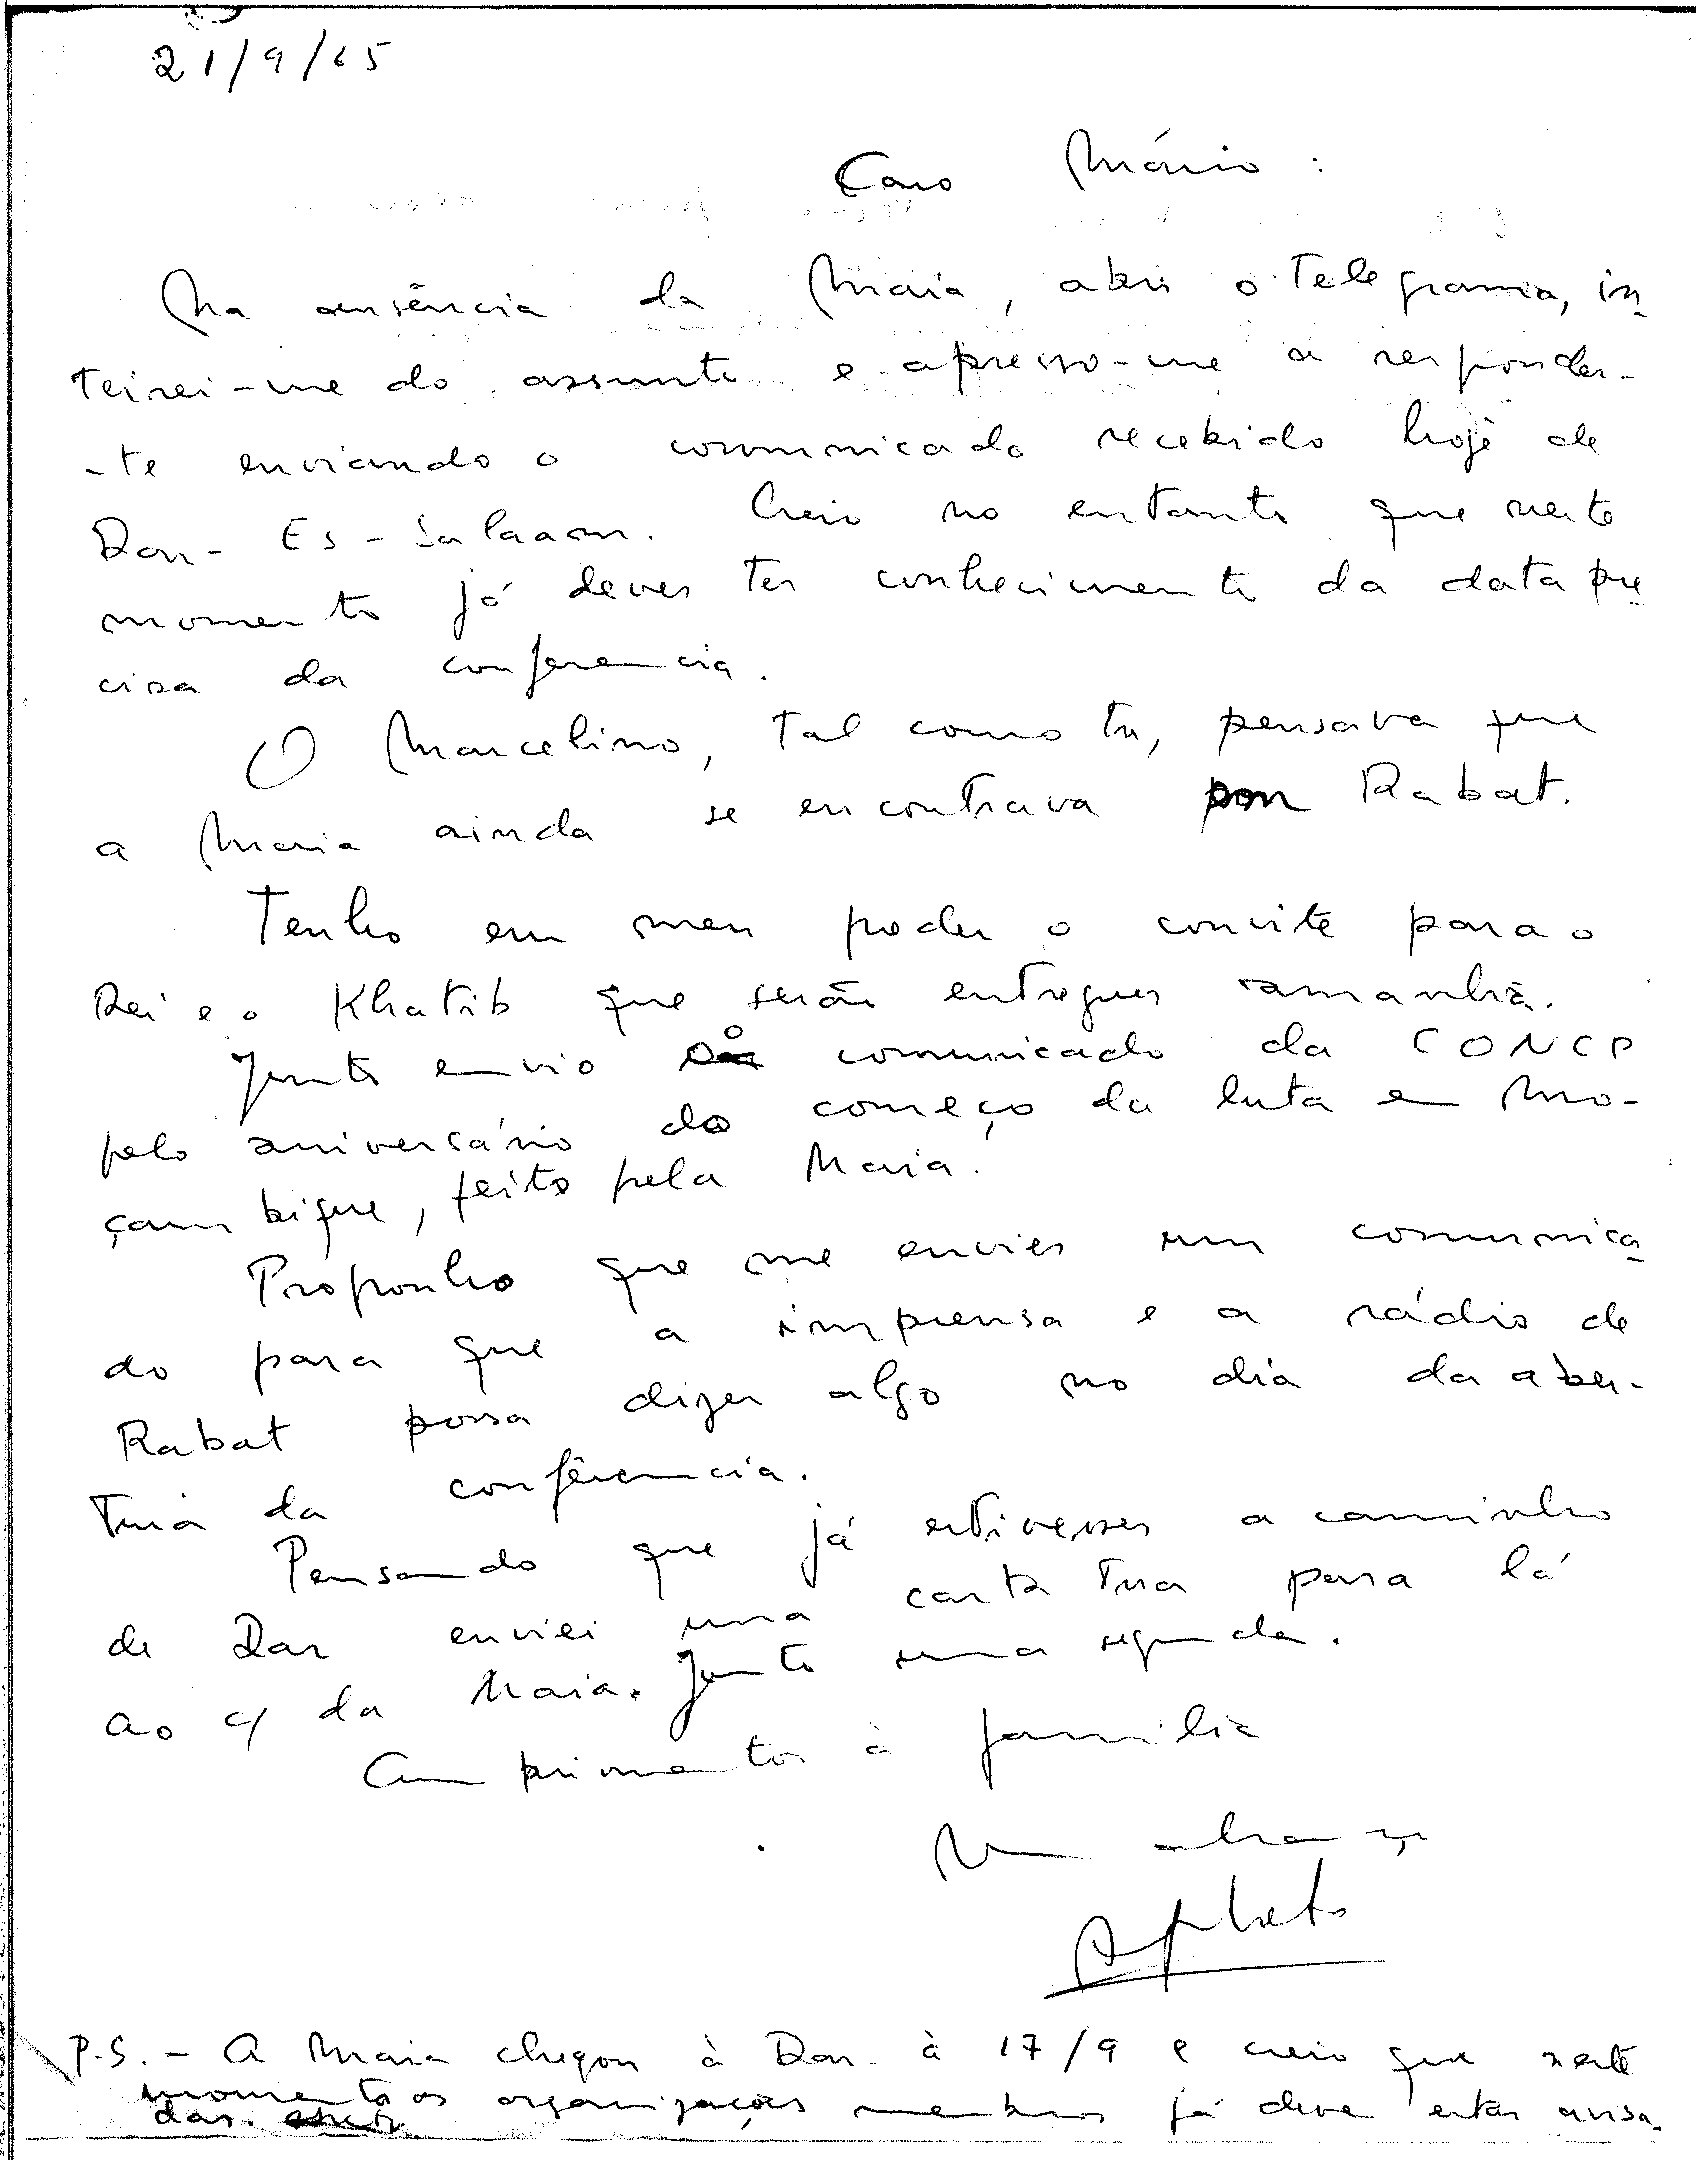 21/9/65
Caro Mário:
Na ausência da Maria, abri o telegrama, in-
teirei-me do assunto e apresso-me a responder-
-te enviando o comunicado recebido hoje de
Dar-Es-Salaam. Creio no entanto que neste
momento já deves ter conhecimento da data pre-
cisa da conferencia.
O Marcelino, tal como tu, pensava que
a Maria ainda se encontrava por Rabat.
Tenho em meu poder o convite para o
Rei e o Khatib que serão entregues amanhã.
Junto envio o comunicado da CONCP
pelo aniversário do começo da luta em Mo-
çambique, feito pela Maria.
Proponho que me envies um comunica-
do para que a imprensa e a rádio de
Rabat possa dizer algo no dia da aber-
tura da conferência.
Pensando que já estivesses a caminho
de Dar enviei uma carta tua para lá
ao c/ da Maria. Junto uma segunda.
Cumprimentos à família
Um abraço
P.S. - A Maria chegou à Dar à 17/9 e creio que neste
momento as organizações membros já deve estar avisa-
das.